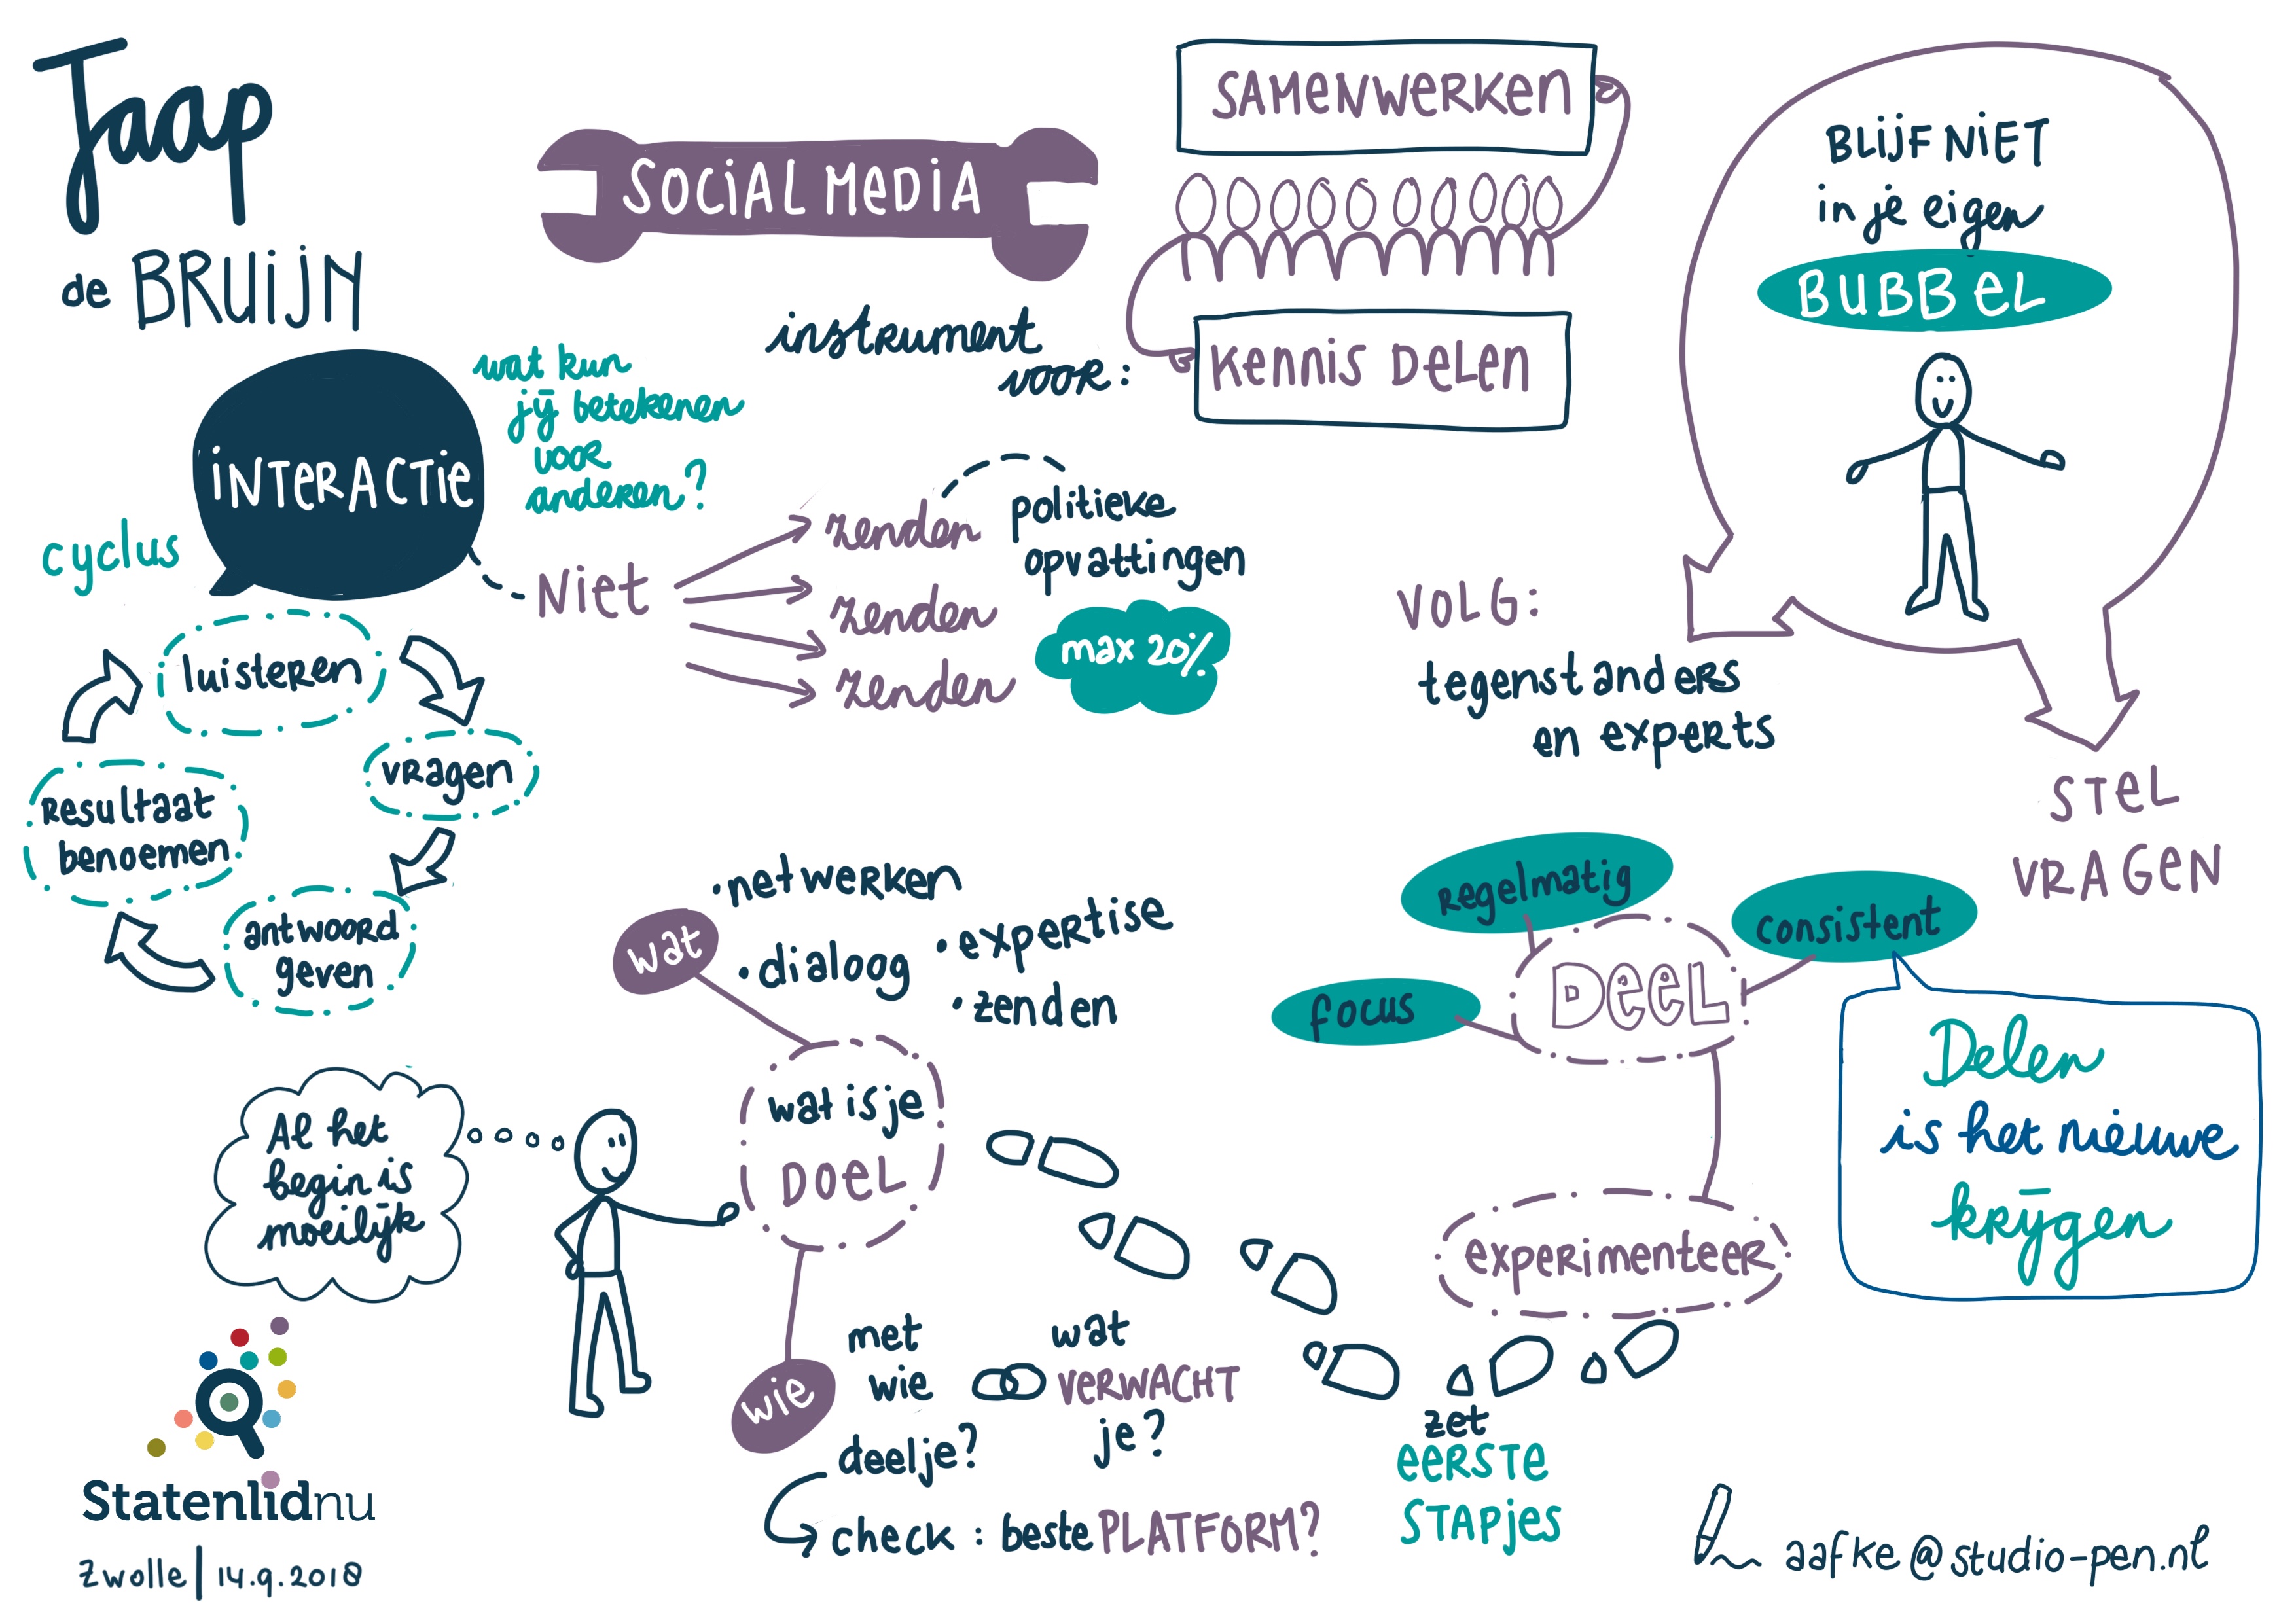 Jaap
de BRUIJN
SOCIAL MEDIA
instrument
voor:
SAMENWERKEN
KENNIS DELEN
BLIJF NIET
in je eigen
BUBBEL
VOLG:
tegenstanders
en experts
STEL
VRAGEN
INTERACTIE
wat kun
jij betekenen
voor
anderen?
NIET
zenden
zenden
zenden
politieke
opvattingen
max 20%
cyclus
luisteren
vragen
antwoord
geven
Resultaat
benoemen
Al het
begin is
moeilijk
wat is je
DOEL
wat
• netwerken
• dialoog
• expertise
• zenden
wie
met
wie
deel je?
wat
VERWACHT
je?
check: beste PLATFORM?
zet
EERSTE
STAPJES
DEEL
Regelmatig
focus
consistent
Delen
is het nieuwe
krijgen
experimenteer
Statenlidnu
Zwolle | 14.9.2018
aafke@studio-pen.nl